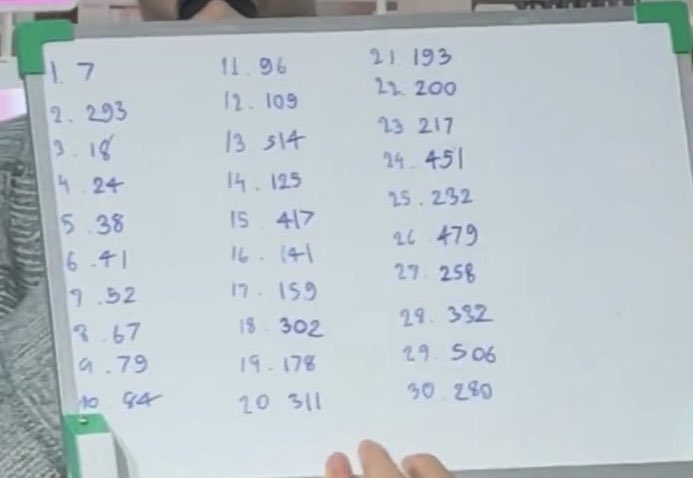 1. 7
2. 293
3. 18
4. 24
5. 38
6. 41
7. 52
8. 67
9. 79
10. 84
11. 96
12. 109
13 514
14. 125
15 417
16. 141
17. 159
18. 302
19. 178
20 311
21. 193
22. 200
23 217
24. 451
25. 232
26 479
27. 258
28. 332
29. 506
30. 280